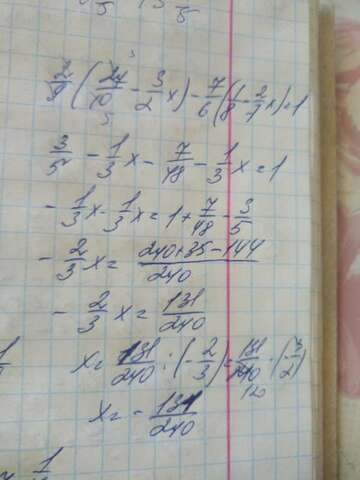 5 5
2/9 (27/10 - 3/2 x) - 7/6 (1/8 - 2/7 x) = 1
3/5 - 1/3 x - 7/48 - 1/3 x = 1
- 1/3 x - 1/3 x = 1 + 7/48 - 3/5
- 2/3 x = 240+35-144/240
- 2/3 x = 131/240
x = 131/240 : (- 2/3) = 131/240 · (- 3/2)
120
x = - 131/240